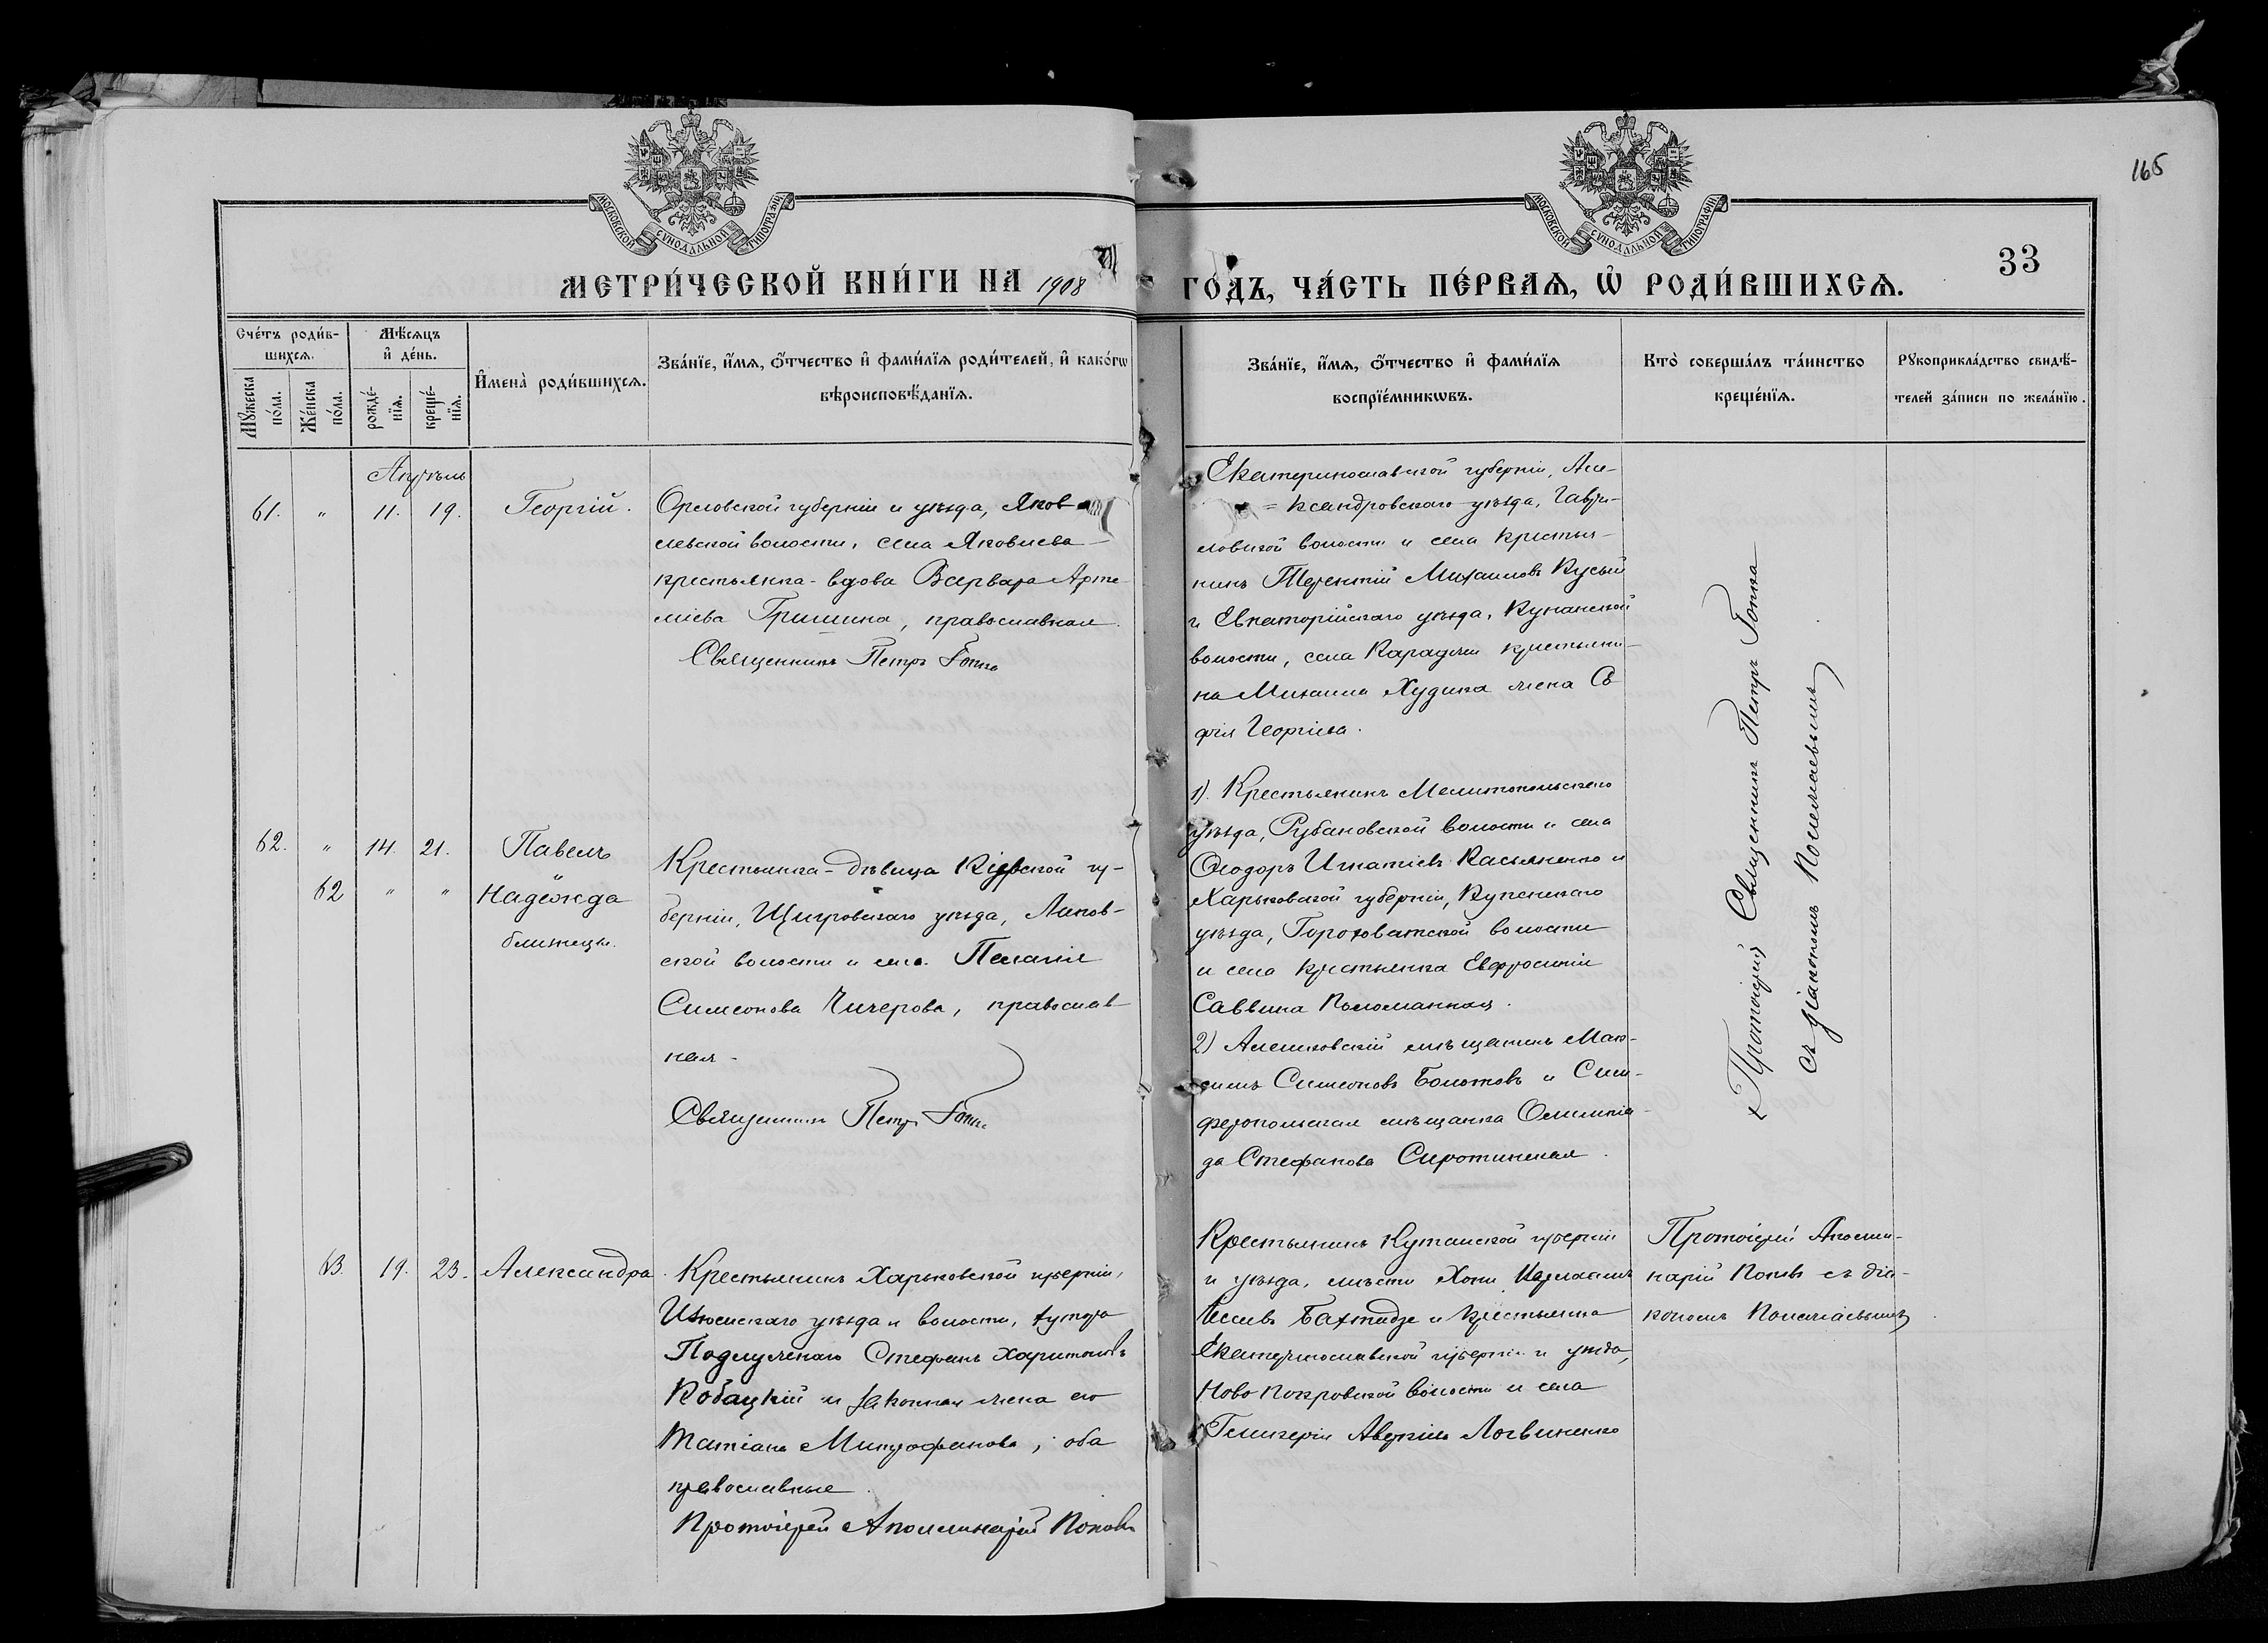 165
МОСКОВСКОЙ СУНОДАЛЬНОЙ ТИПОГРАФІИ
МОСКОВСКОЙ СУНОДАЛЬНОЙ ТИПОГРАФІИ
33
МЕТРИ́ЧЕСКОЙ КНИ́ГИ НА 1908 ГО́ДЪ, ЧА́СТЬ ПЕ́РВАѦ, Ѽ РОДИ́ВШИХСѦ.
Сче́тъ роди́в-
шихсѧ.
Мꙋ́жеска по́ла.
Же́нска по́ла.
Мѣ́сѧцъ
и҆ де́нь.
рожде́-
нїѧ.
креще́-
нїѧ.
И҆мена̀ роди́вшихсѧ.
Зва́нїе, и҆́мѧ, ѻ҆́тчество и҆ фами́лїѧ роди́телей, и҆ како́гѡ
вѣроисповѣ́данїѧ.
Зва́нїе, и҆́мѧ, ѻ҆́тчество и҆ фами́лїѧ
воспрїе́мникѡвъ.
Кто̀ соверша́лъ та́инство
креще́нїѧ.
Рꙋкоприкла́дство свидѣ́-
телей за́писи по жела́нїю.
Апрѣль
61. " 11. 19. Георгій.
Орловской губерніи и уѣзда, Яков-
левской волости, села Яковлева
крестьянка-вдова Варвара Арте-
міева Гришина, православная.
Священникъ Петръ
Екатеринославской губерніи, Але-
=ксандровскаго уѣзда, Гаври-
ловской волости и села крестья-
нинъ Терентій Михаиловъ Кусый
и Евпаторійскаго уѣзда,
волости, села Караджи крестьяни-
на Михаила Худика жена Со-
фія Георгіева.
62. " 14. 21. Павелъ
62 " " Надежда
близнецы.
Крестьянка-дѣвица Курской гу-
берніи, Щигровскаго уѣзда, Липов-
ской волости и села Пелагія
Симеонова Чичерова, православ-
ная.
Священникъ Петръ
1). Крестьянинъ Мелитопольскаго
уѣзда, Рубановской волости и села
Ѳеодоръ Игнатіевъ Касьяненко и
Харьковской губерніи, Купенскаго
уѣзда, Гороховатской волости
и села крестьянка Евфросинія
Саввина
2) Алешковскій мѣщанинъ Мак-
симъ Симеоновъ Болотовъ и Сим-
феропольская мѣщанка Олимпіа-
да Стефанова Сиротинская.
Протоіерей Священникъ Петръ
съ діакономъ
63. 19. 23. Александра.
Крестьянинъ Харьковской губерніи,
Изюмскаго уѣзда и волости, хутора
Стефанъ Харитоновъ
Кобацкій и законная жена его
Татіана Митрофанова, оба
православные.
Протоіерей Аполлинарій Поповъ
Крестьянинъ Кутаисской губерніи
и уѣзда, мѣсти Хони
Бахтидзе и крестьянка
Екатеринославской губерніи и уѣзда,
Ново Покровской волости и села
Гликерія Логвиненко
Протоіерей Аполли-
нарій Поповъ съ діа-
кономъ